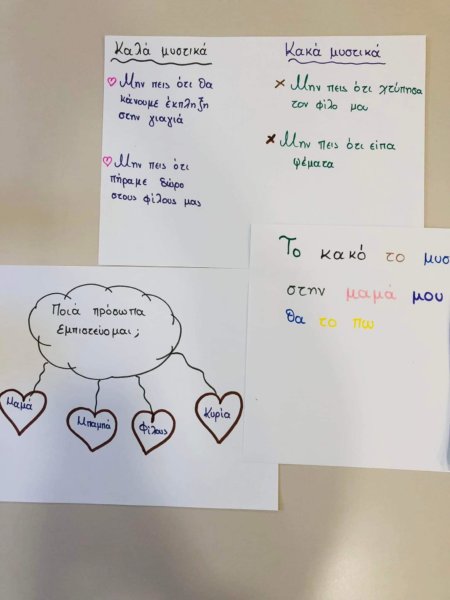 Καλά μυστικά
Μην πεις ότι θα
κάνουμε έκπληξη
στην γιαγιά
Μην πεις ότι
πήραμε δώρο
στους φίλους μας
Κακά μυστικά
Μην πεις ότι χτύπησα
τον φίλο μου
Μην πεις ότι είπα
ψέματα
Το κακό το μυσ
στην μαμά μου
θα το πω
Ποιά πρόσωπα
εμπιστεύομαι;
Μαμά
Μπαμπά
Φίλους
Κυρία